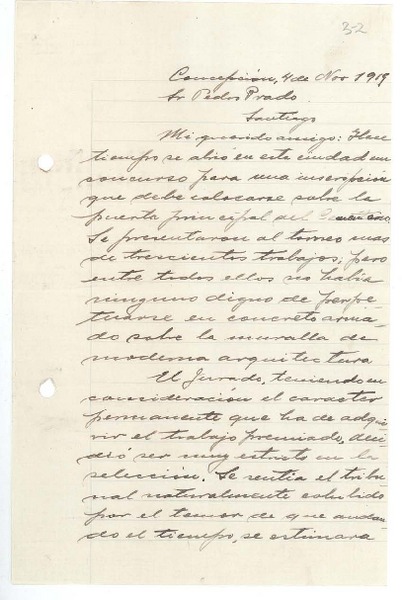 32
Concepción, 4 de Nov 1919
Sr Pedro Prado
Santiago
Mi querido amigo: Hace
tiempo se abrió en esta ciudad un
concurso para una inscripción
que debe colocarse sobre la
puerta principal del
Se presentaron al torneo mas
de trescientos trabajos; pero
entre todos ellos no había
ninguno digno de perpe-
tuarse en concreto arma-
do sobre la muralla de
moderna arquitectura
El Jurado, teniendo en
consideración el carácter
permanente que ha de adqui-
rir el trabajo premiado, deci-
dió ser muy estricto en la
selección. Se sentía el tribu-
nal naturalmente cohibido
por el temor de que andan-
do el tiempo, se estimara